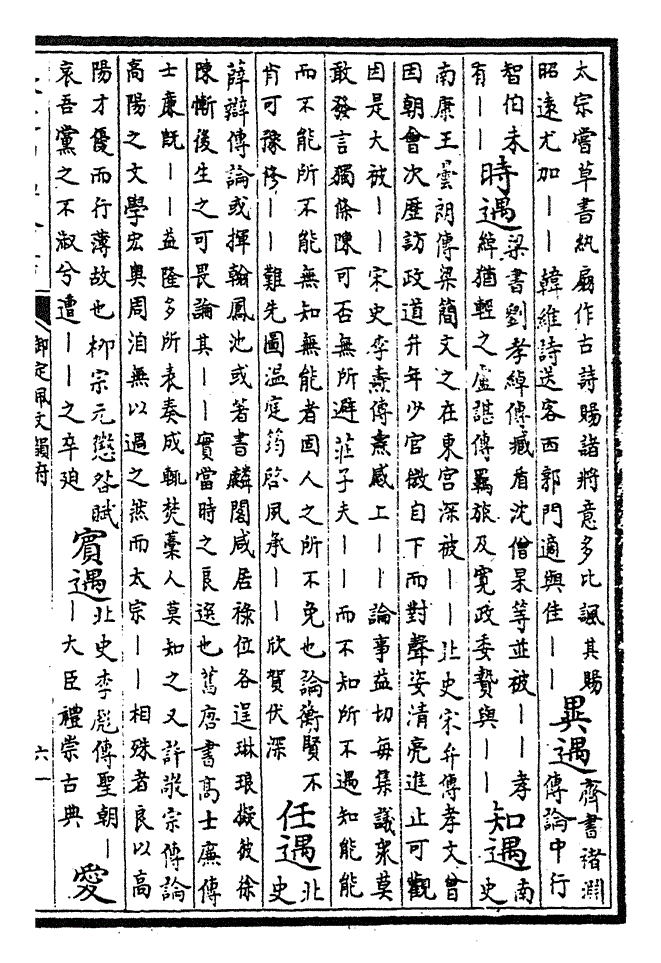 太宗嘗草書紈扇作古詩賜諸將意多比諷其賜
昭遠尤加——韓維詩送客西郭門適與佳——
異遇
齊書褚淵
傳論中行
智伯未
有——
時遇
梁書劉孝綽傳臧盾沈僧杲等並被——孝
綽猶輕之盧諶傳羈旅及寬政委贄與——
知遇
南
史
南康王曇朗傳梁簡文之在東宮深被——北史宋弁傳孝文曾
因朝會次歷訪政道弁年少官微自下而對聲姿清亮進止可觀
因是大被——宋史李熹傳熹感上——論事益切每集議衆莫
敢發言獨條陳可否無所避莊子夫——而不知所不遇知能能
而不能所不能無知無能者固人之所不免也論衡賢不
肯可豫修——難先圖溫庭筠啓夙承——欣賀伏深
任遇
北
史
薛辯傳論或揮翰鳳池或著書麟閣咸居祿位各逞琳琅擬彼徐
陳慚後生之可畏論其——實當時之良選也舊唐書高士廉傳
士廉旣——益隆多所表奏成輒焚藁人莫知之又許敬宗傳論
高陽之文學宏奧周洎無以過之然而太宗——相殊者良以高
陽才優而行薄故也柳宗元懲咎賦
哀吾黨之不淑兮遭——之卒廹
賓遇
北史李彪傳聖朝—
—大臣禮崇古典
愛
御定佩文韻府
六一